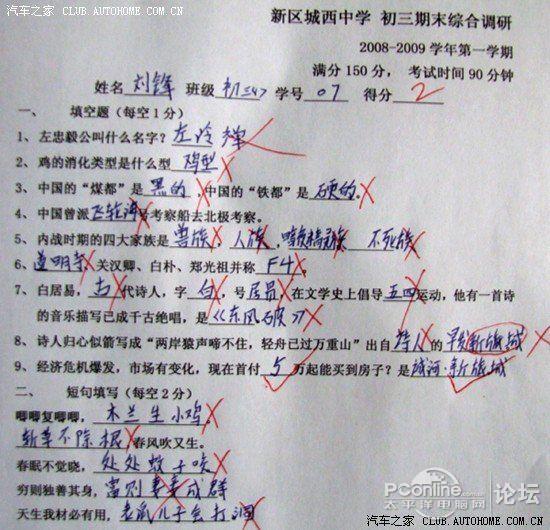 汽车之家 CLUB.AUTOHOME.COM.CN
汽车之家 CLUB.AUTOHOME.COM.CN
新区城西中学 初三期末综合调研
2008-2009 学年第一学期
满分 150 分， 考试时间 90 分钟
姓名 刘锋 班级 初三47 学号 07 得分 2
一、 填空题（每空 1 分）
1、左忠毅公叫什么名字？左冷禅
2、鸡的消化类型是什么型 鸡型
3、中国的“煤都”是 黑的 ,中国的“铁都”是 硬的。
4、中国曾派 飞轮海 号考察船去北极考察。
5、内战时期的四大家族是 兽族、人族、暗夜精灵族 不死族
6、道明寺、关汉卿、白朴、郑光祖并称 F4。
7、白居易，古 代诗人，字 白，号 居易，在文学史上倡导 五四 运动，他有一首诗
的音乐描写已成千古绝唱，是《东风破》
8、诗人归心似箭写成“两岸猿声啼不住，轻舟已过万重山”出自 诗人 的 早发新旅城
9、经济危机爆发，市场有变化，现在首付 5 万起能买到房子？是 城河·新旅城
二、 短句填写（每空 2 分）
唧唧复唧唧，木兰生小鸡。
斩草不除根，春风吹又生。
春眠不觉晓，处处蚊子咬
穷则独善其身，富则妻妾成群
天生我材必有用，老鼠儿子会打洞
PConline.com.cn
太平洋电脑网 论坛
汽车之家 CLUB.AUTOHOME.COM.CN